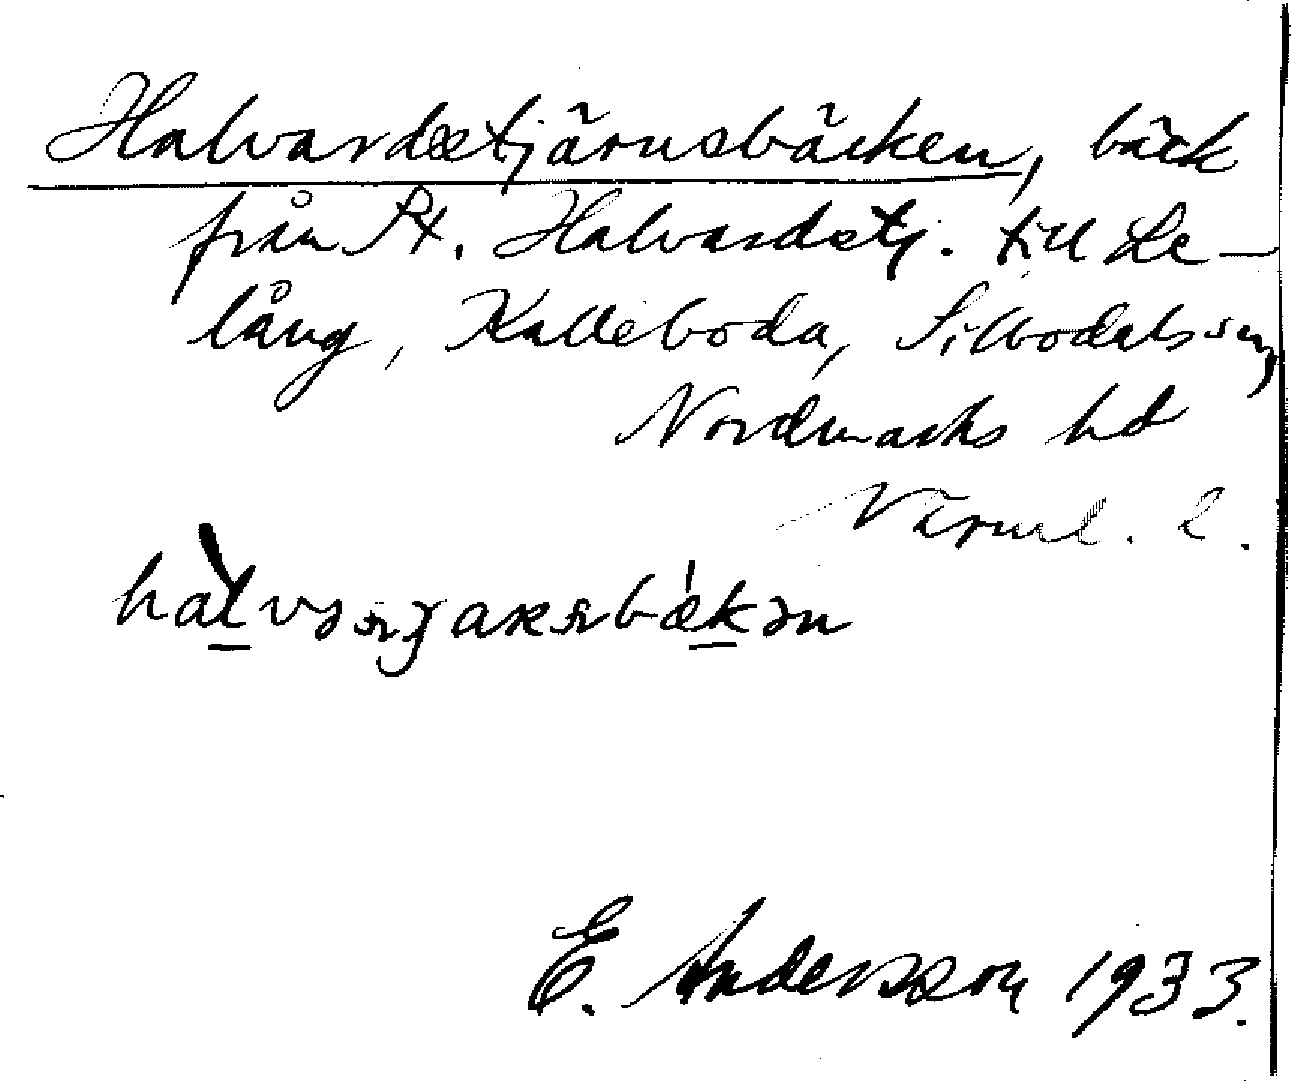 Halvardstjärnsbäcken, bäck
från St. Halvardstj. till Le-
lång, Kalleboda, Sillbodals sn,
Nordmarks hd
Värml. l.
E. Andersson 1933.